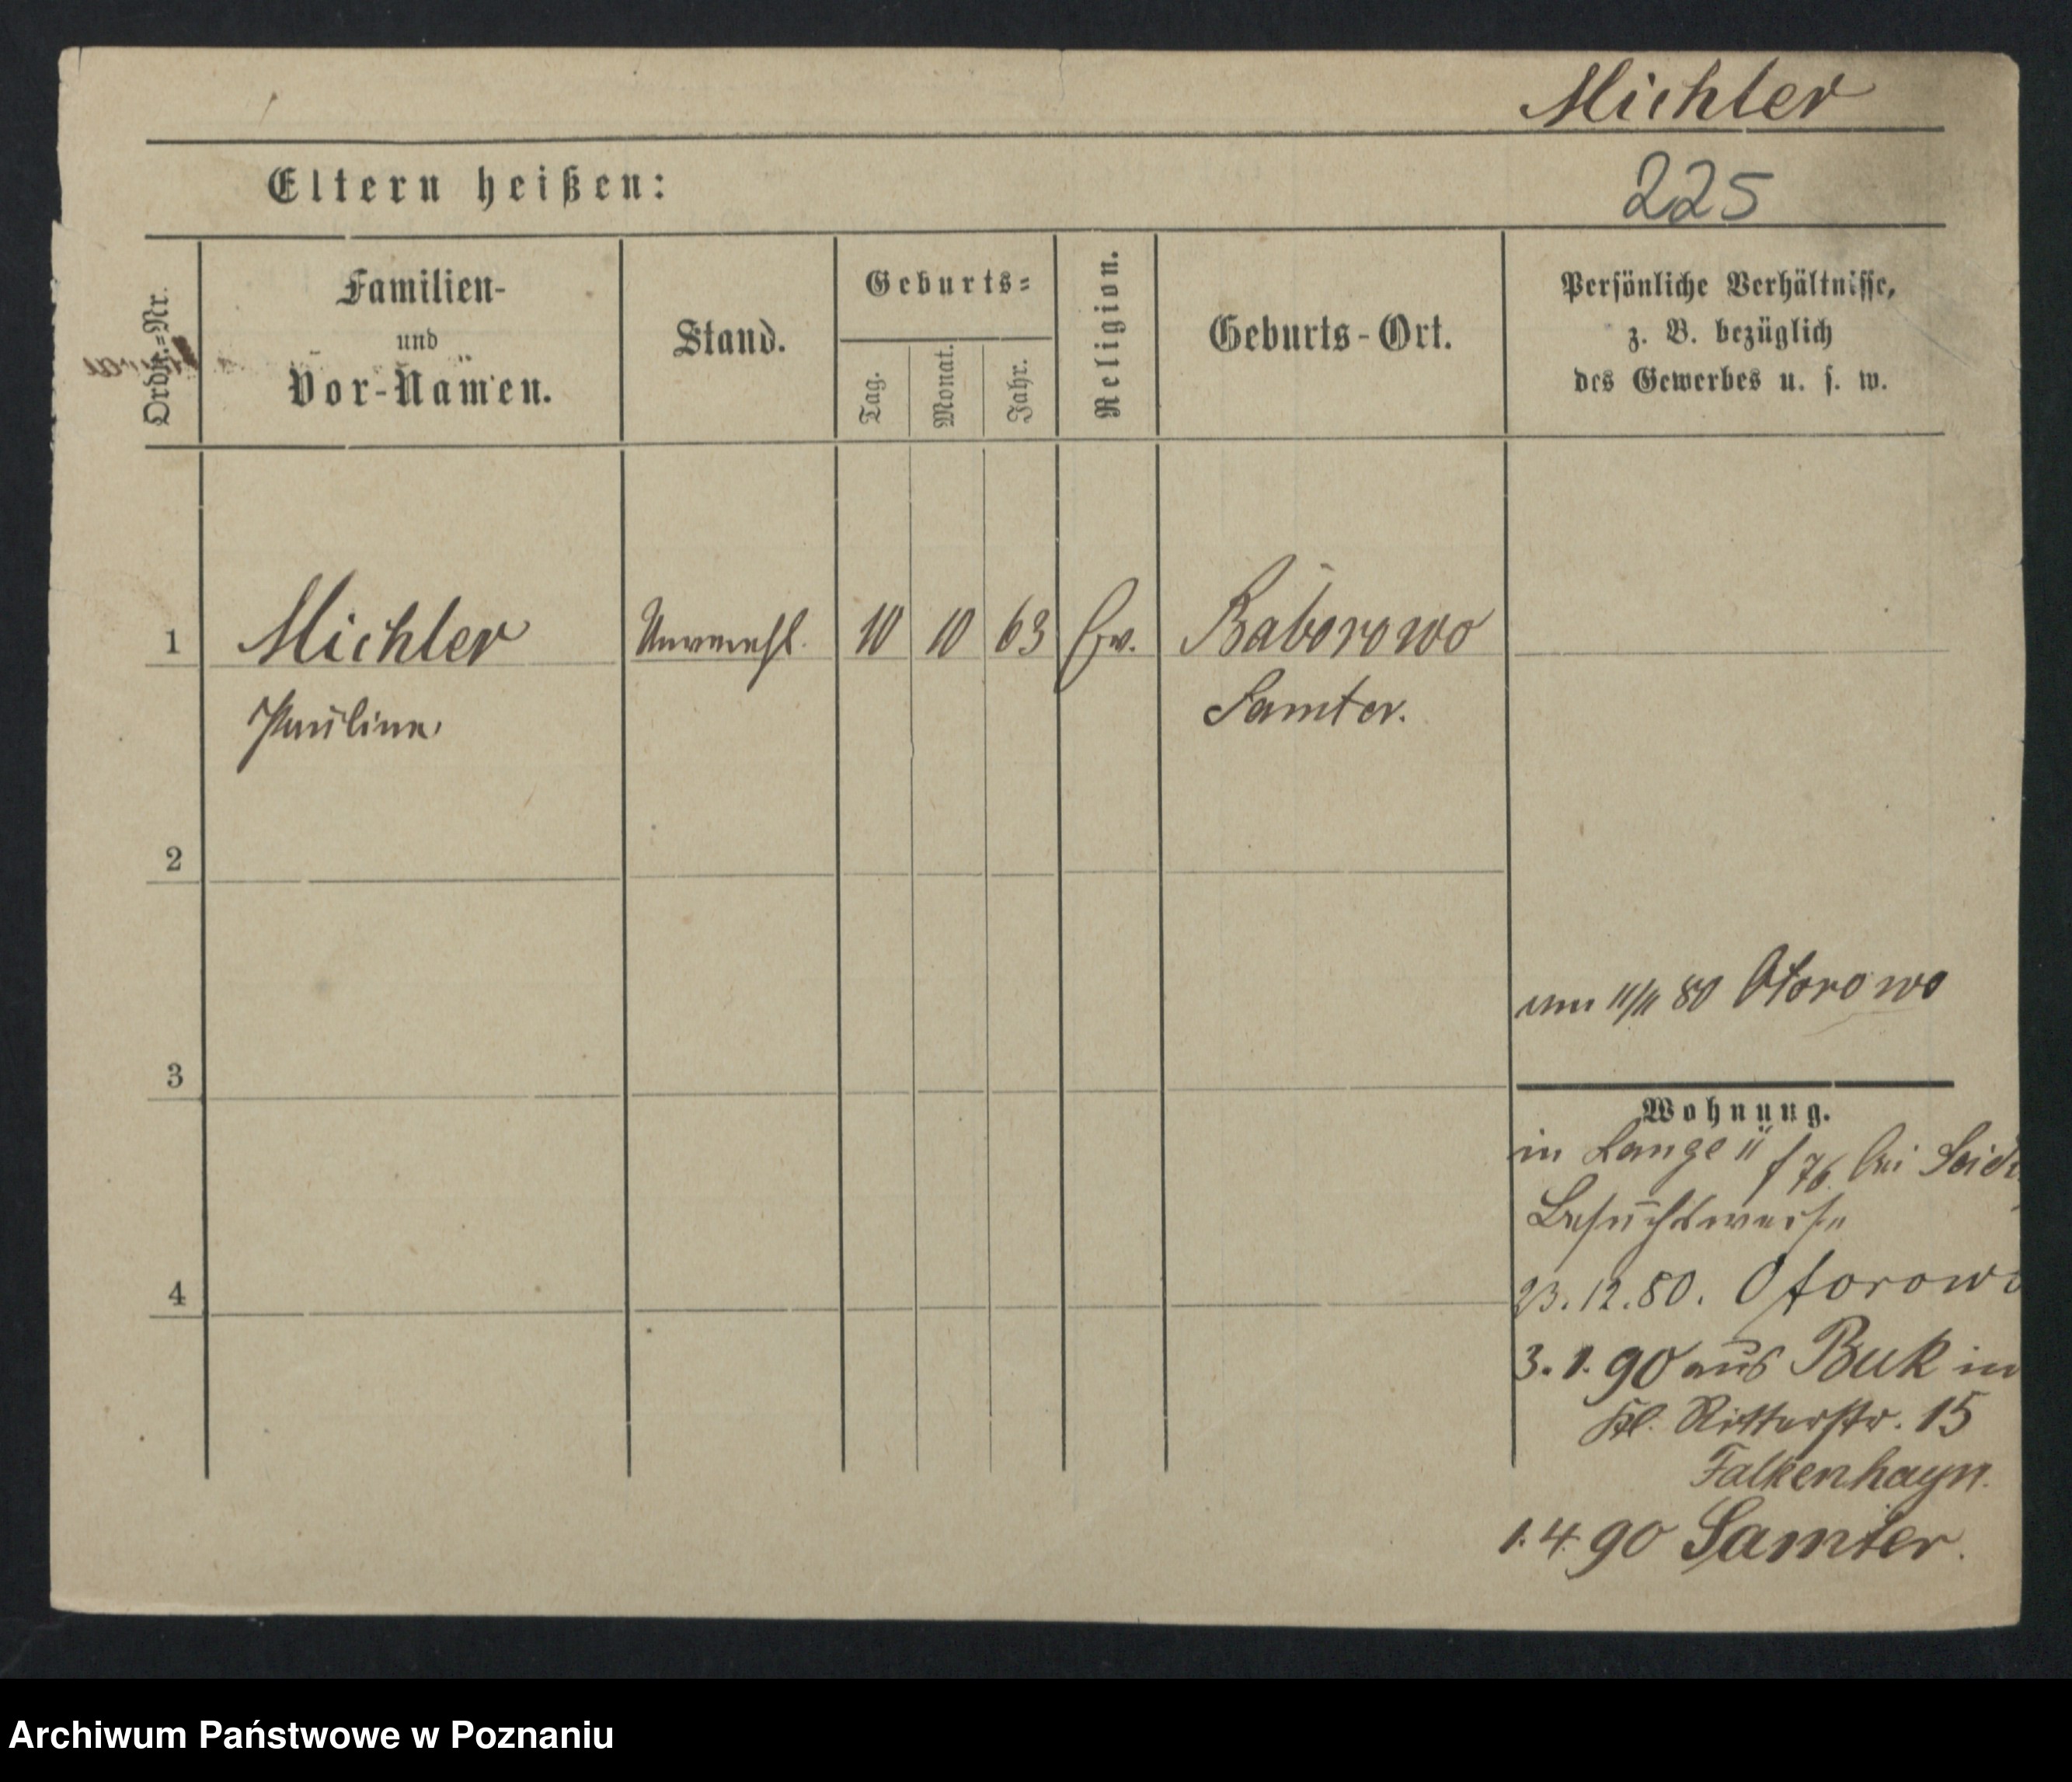 Michler
Eltern heißen:
225
Ordn.=Nr.
Familien-
und
Vor-Namen.
Stand.
Geburts=
Tag.
Monat.
Jahr.
Religion.
Geburts-Ort.
Persönliche Verhältnisse,
z. B. bezüglich
des Gewerbes u. s. w.
1 Michler Unverehl. 10 10 63 Ev. Baborowo
Pauline Samter.
2
11/11 80 Otorowo
3
Wohnung.
in Lange 76. bei
Besuchsweise
23.12.80. Otorowo
4
3.1.90 aus Buk in
Kl. Ritterstr. 15
Falkenhayn.
1.4.90 Samter.
Archiwum Państwowe w Poznaniu